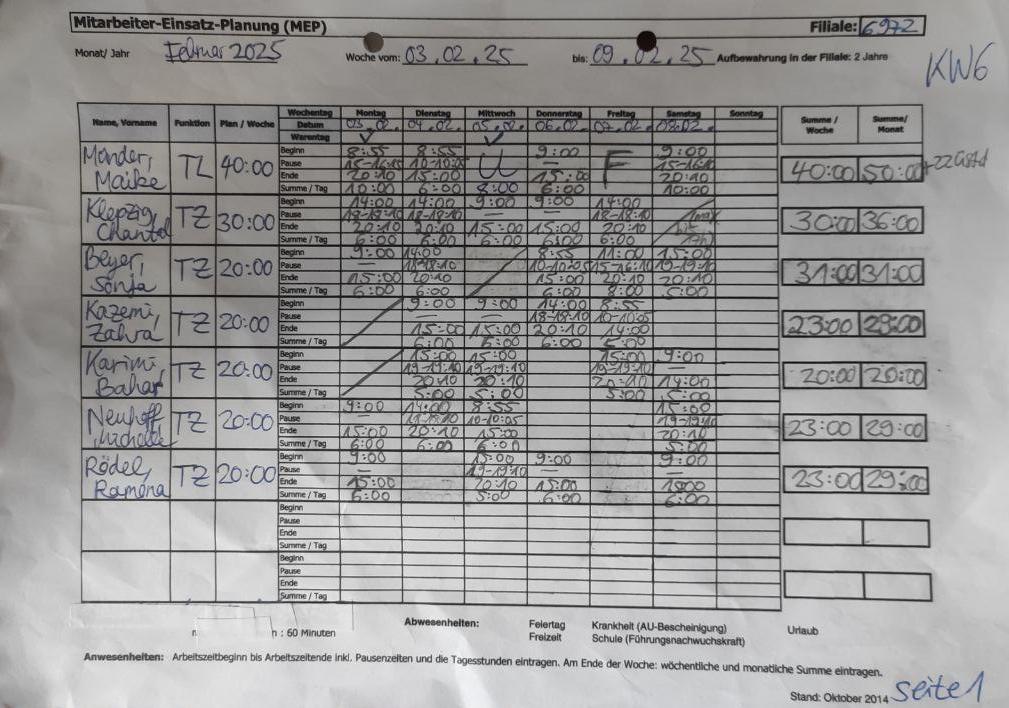 Mitarbeiter-Einsatz-Planung (MEP) Filiale: 6972
Monat/ Jahr Februar 2025 Woche vom: 03.02.25 bis: 09.02.25 Aufbewahrung in der Filiale: 2 Jahre
KW6
Name, Vorname Funktion Plan / Woche Wochentag Montag Dienstag Mittwoch Donnerstag Freitag Samstag Sonntag Summe / Woche Summe/ Monat
Datum 03.02. 04.02. 05.02. 06.02. 07.02. 08.02.
Warentag
Monder, Maike TL 40:00 40:00 50:00
Beginn 8:55 8:55 U 9:00 F 9:00
Pause 15-16:15 10-10:05 — 15-16:10
Ende 20:10 15:00 15:00 20:10
Summe / Tag 10:00 6:00 8:00 6:00 10:00
Klepzig, Chantal TZ 30:00 30:00 36:00
Beginn 14:00 14:00 9:00 9:00 14:00
Pause 18-18:10 18-18:10 — — 18-18:10
Ende 20:10 20:10 15:00 15:00 20:10
Summe / Tag 6:00 6:00 6:00 6:00 6:00
Beyer, Sonja TZ 20:00 31:00 31:00
Beginn 9:00 14:00 8:55 11:00 15:00
Pause — 18-18:10 10-10:05 15-16:10 19-19:10
Ende 15:00 20:10 15:00 20:10 20:10
Summe / Tag 6:00 6:00 6:00 8:00 5:00
Kazemi, Zahra TZ 20:00 23:00 29:00
Beginn 9:00 9:00 14:00 8:55
Pause — — 18-18:10 10-10:05
Ende 15:00 15:00 20:10 14:00
Summe / Tag 6:00 6:00 6:00 5:00
Karimi, Bahar TZ 20:00 20:00 20:00
Beginn 15:00 15:00 15:00 9:00
Pause 19-19:10 19-19:10 19-19:10 —
Ende 20:10 20:10 20:10 14:00
Summe / Tag 5:00 5:00 5:00 5:00
Neuhoff, Michelle TZ 20:00 23:00 29:00
Beginn 9:00 14:00 8:55 15:00
Pause — 18-18:10 10-10:05 19-19:10
Ende 15:00 20:10 15:00 20:10
Summe / Tag 6:00 6:00 6:00 5:00
Rödel, Ramona TZ 20:00 23:00 29:00
Beginn 9:00 15:00 9:00 9:00
Pause — 19-19:10 — —
Ende 15:00 20:10 15:00 15:00
Summe / Tag 6:00 5:00 6:00 6:00
Beginn
Pause
Ende
Summe / Tag
Beginn
Pause
Ende
Summe / Tag
: 60 Minuten Abwesenheiten: Feiertag Krankheit (AU-Bescheinigung) Urlaub
Freizeit Schule (Führungsnachwuchskraft)
Anwesenheiten: Arbeitszeitbeginn bis Arbeitszeitende inkl. Pausenzeiten und die Tagesstunden eintragen. Am Ende der Woche: wöchentliche und monatliche Summe eintragen.
Stand: Oktober 2014 Seite 1